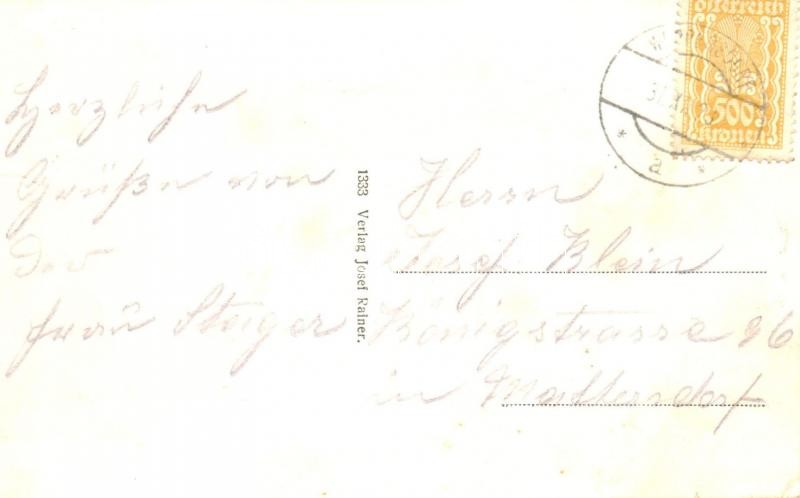 Herzliche
Grüße von
der
Frau Steiger
1333 Verlag Josef Rainer.
Österreich
500
Kronen
a
Herrn
Josef Klein
Königstrasse 26
in Mattersdorf